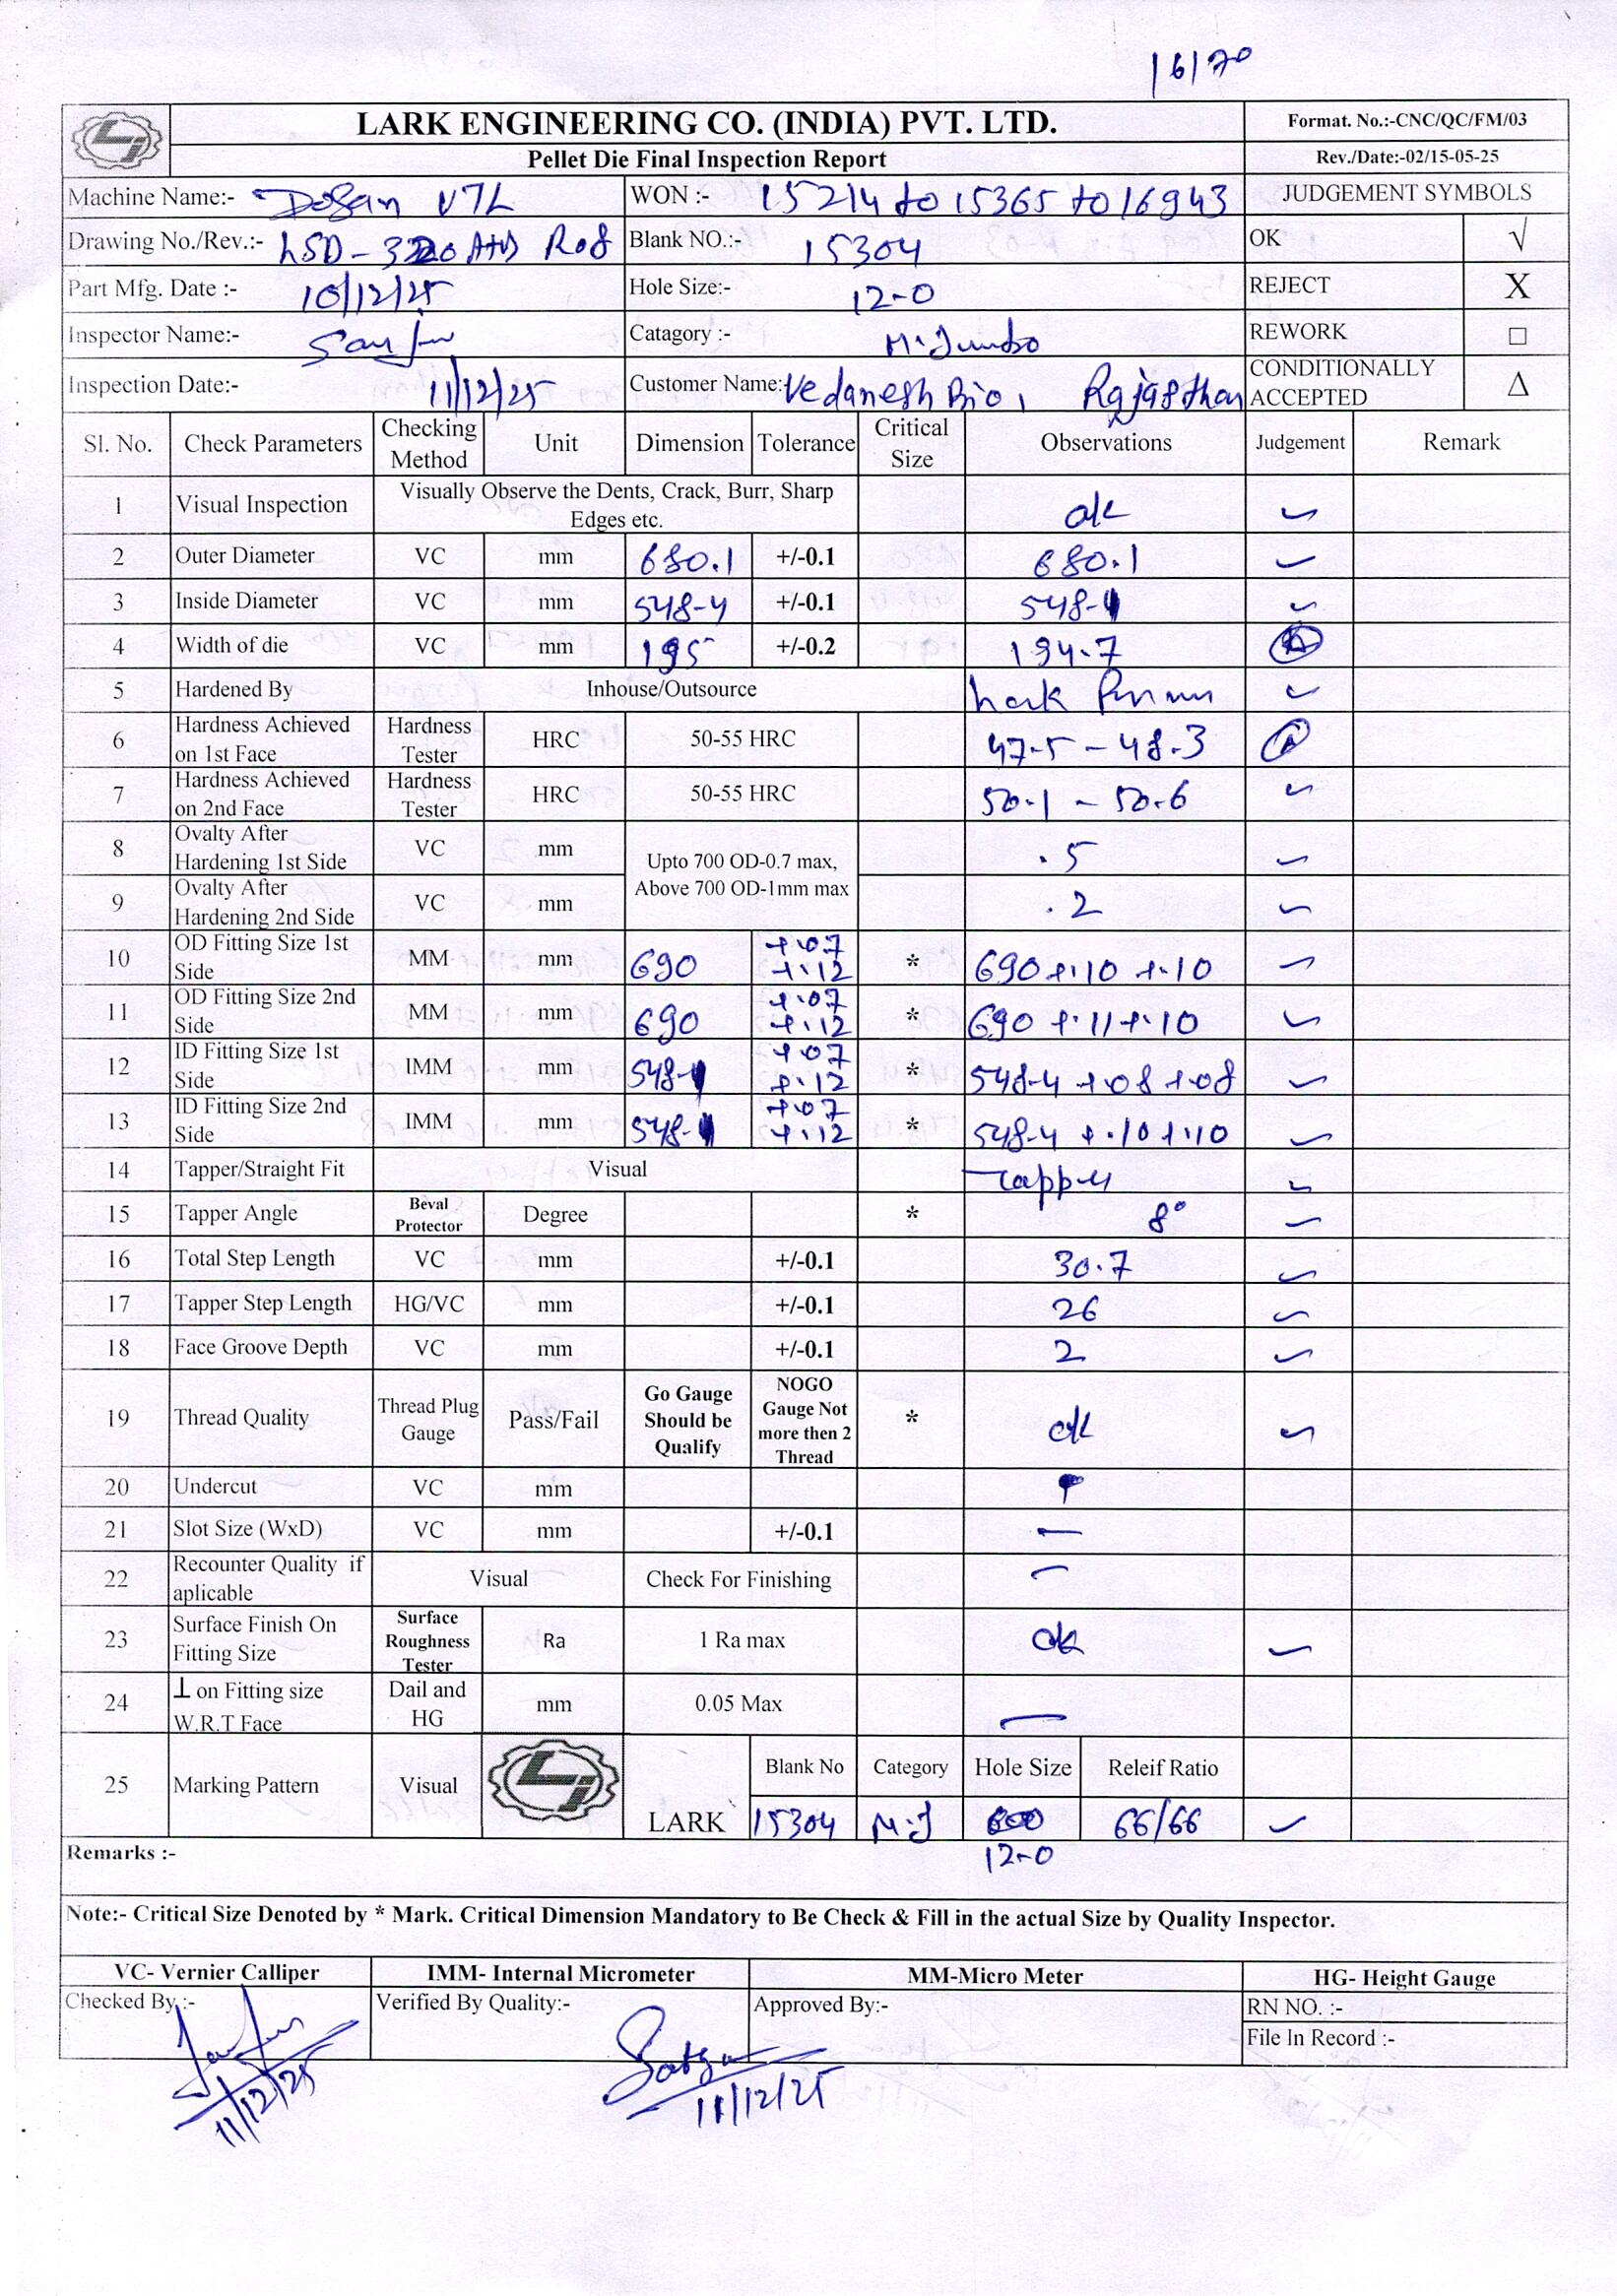 16170
LARK ENGINEERING CO. (INDIA) PVT. LTD.
Format. No.:-CNC/QC/FM/03
Pellet Die Final Inspection Report
Rev./Date:-02/15-05-25
Machine Name:- Dogan VTL WON :- 15214 to 15365 to 16943 JUDGEMENT SYMBOLS
Drawing No./Rev.:- LSD- Blank NO.:- 15304 OK √
Part Mfg. Date :- 10/12/25 Hole Size:- 12-0 REJECT X
Inspector Name:- Sanju Catagory :- M.Jumbo REWORK □
Inspection Date:- 11/12/25 Customer Name: Vedanesh Bio, Rajasthan CONDITIONALLY ACCEPTED Δ
Sl. No. Check Parameters Checking Method Unit Dimension Tolerance Critical Size Observations Judgement Remark
1 Visual Inspection Visually Observe the Dents, Crack, Burr, Sharp Edges etc. ok ✓
2 Outer Diameter VC mm 680.1 +/-0.1 680.1 ✓
3 Inside Diameter VC mm 548-4 +/-0.1 548-4 ✓
4 Width of die VC mm 195 +/-0.2 194.7
5 Hardened By Inhouse/Outsource Lark ✓
6 Hardness Achieved on 1st Face Hardness Tester HRC 50-55 HRC 47.5 - 48.3
7 Hardness Achieved on 2nd Face Hardness Tester HRC 50-55 HRC 50.1 - 50.6 ✓
8 Ovalty After Hardening 1st Side VC mm Upto 700 OD-0.7 max, Above 700 OD-1mm max .5 ✓
9 Ovalty After Hardening 2nd Side VC mm .2 ✓
10 OD Fitting Size 1st Side MM mm 690 +.07 +.12 * 690 +.10 +.10 ✓
11 OD Fitting Size 2nd Side MM mm 690 +.07 +.12 * 690 +.11 +.10 ✓
12 ID Fitting Size 1st Side IMM mm 548-4 +.07 +.12 * 548-4 +.08 +.08 ✓
13 ID Fitting Size 2nd Side IMM mm 548-4 +.07 +.12 * 548-4 +.10 +.10 ✓
14 Tapper/Straight Fit Visual Tapper ✓
15 Tapper Angle Beval Protector Degree * 8° ✓
16 Total Step Length VC mm +/-0.1 30.7 ✓
17 Tapper Step Length HG/VC mm +/-0.1 26 ✓
18 Face Groove Depth VC mm +/-0.1 2 ✓
19 Thread Quality Thread Plug Gauge Pass/Fail Go Gauge Should be Qualify NOGO Gauge Not more then 2 Thread * ok ✓
20 Undercut VC mm
21 Slot Size (WxD) VC mm +/-0.1 —
22 Recounter Quality if aplicable Visual Check For Finishing —
23 Surface Finish On Fitting Size Surface Roughness Tester Ra 1 Ra max ok ✓
24 ⊥ on Fitting size W.R.T Face Dail and HG mm 0.05 Max —
25 Marking Pattern Visual LARK Blank No Category Hole Size Releif Ratio
15304 M.J 12-0 66/66 ✓
Remarks :-
Note:- Critical Size Denoted by * Mark. Critical Dimension Mandatory to Be Check & Fill in the actual Size by Quality Inspector.
VC- Vernier Calliper IMM- Internal Micrometer MM-Micro Meter HG- Height Gauge
Checked By :- Verified By Quality:- Approved By:- RN NO. :-
File In Record :-
11/12/25 11/12/25